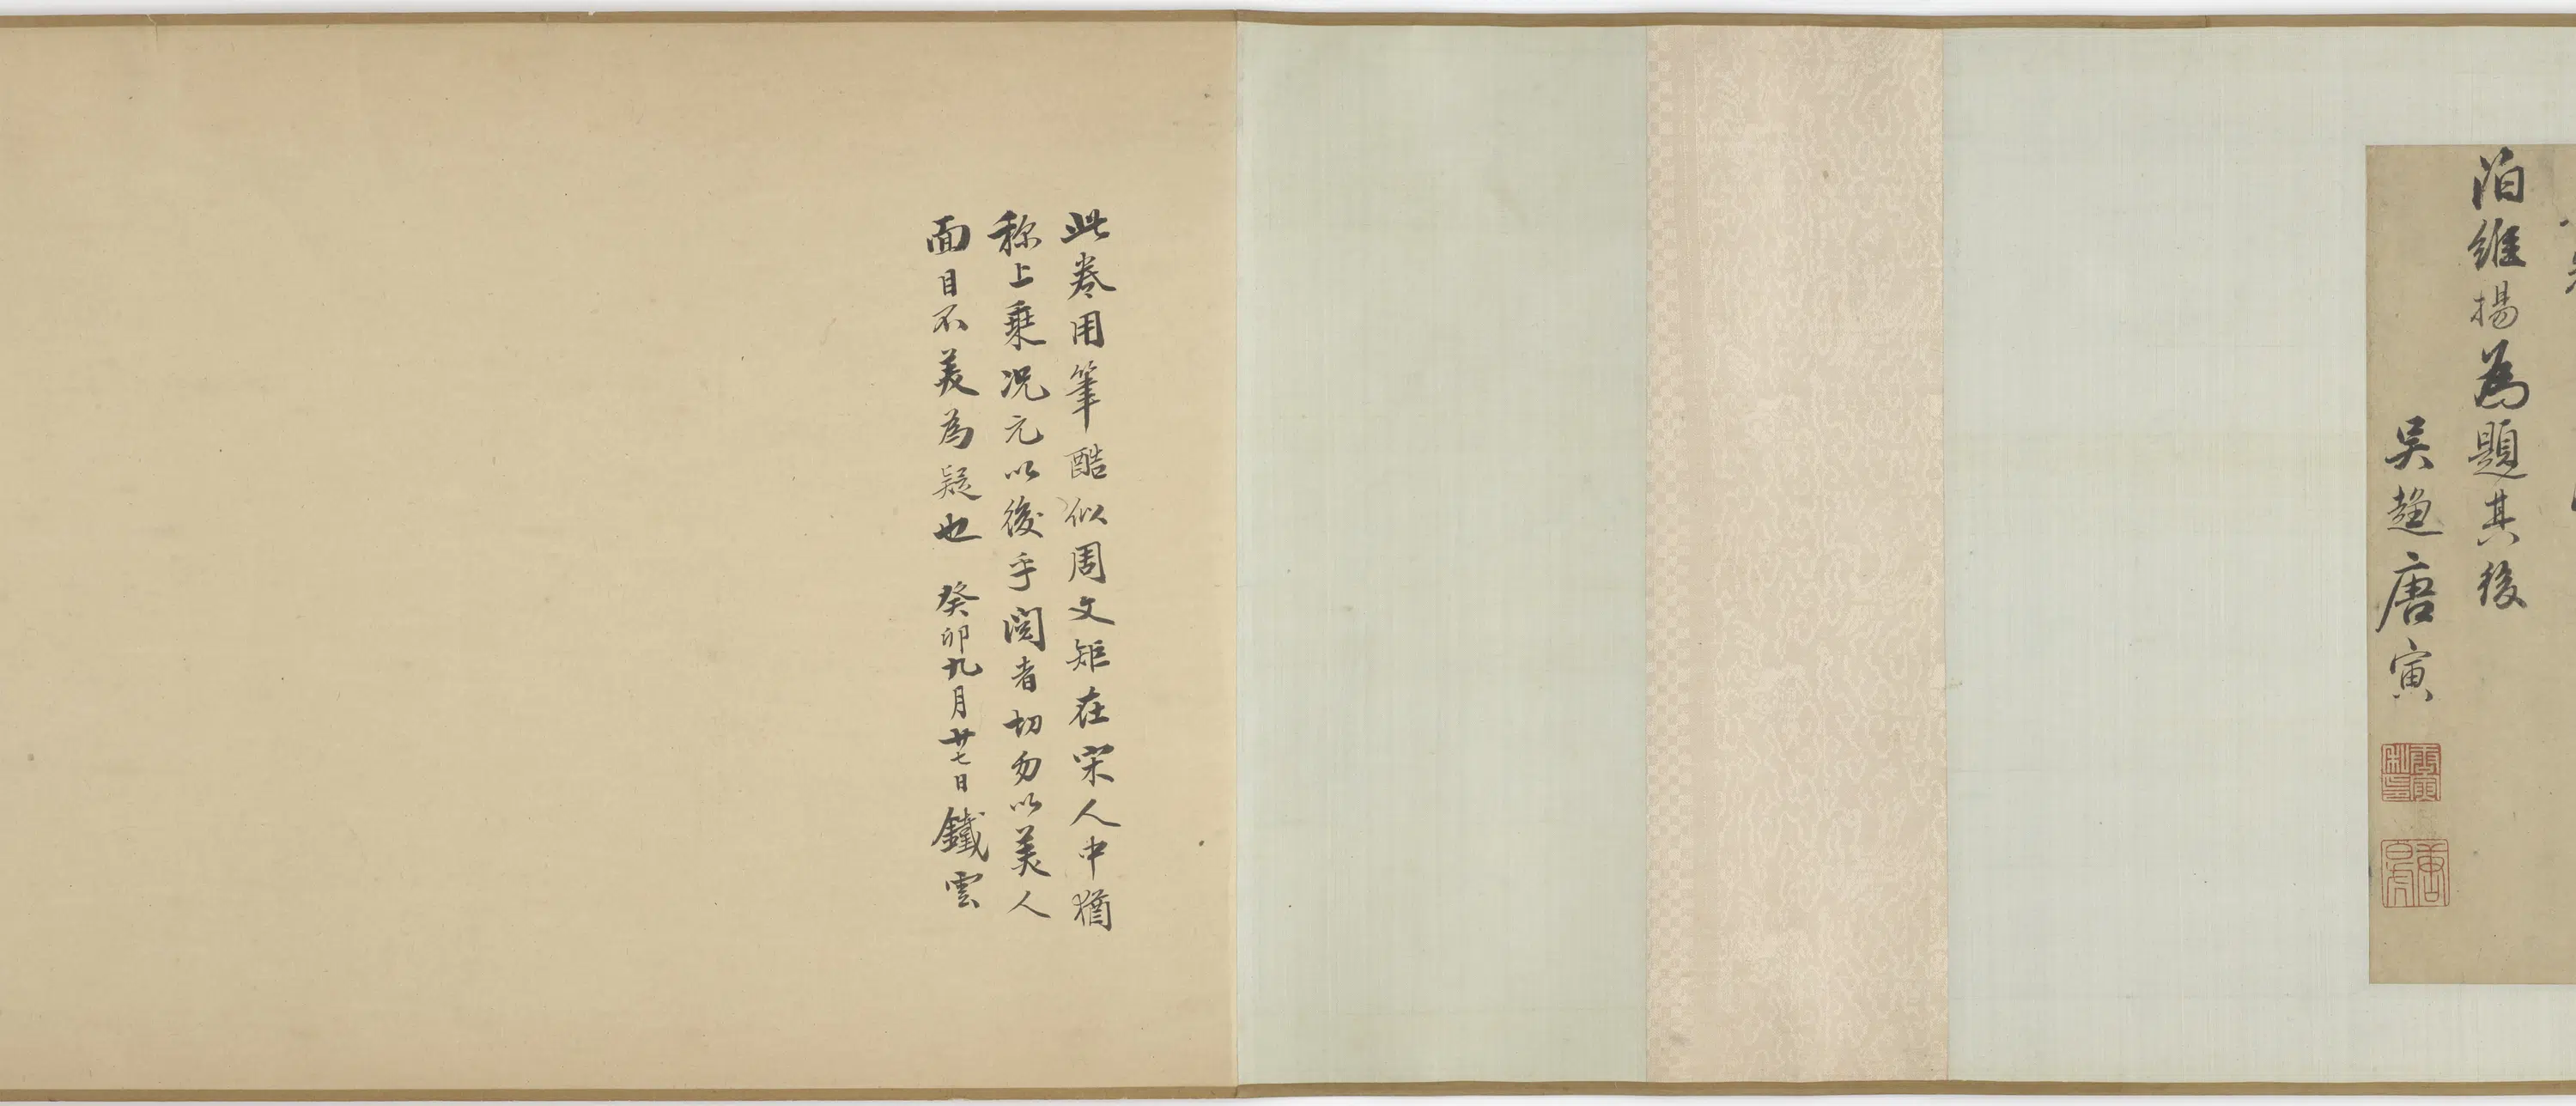 泊維揚為題其後
吳趨唐寅
唐寅私印
此卷用筆酷似周文矩在宋人中猶
称上乗况元以後乎閲者切勿以美人
面目不美為疑也 癸卯九月廿七日鐵雲